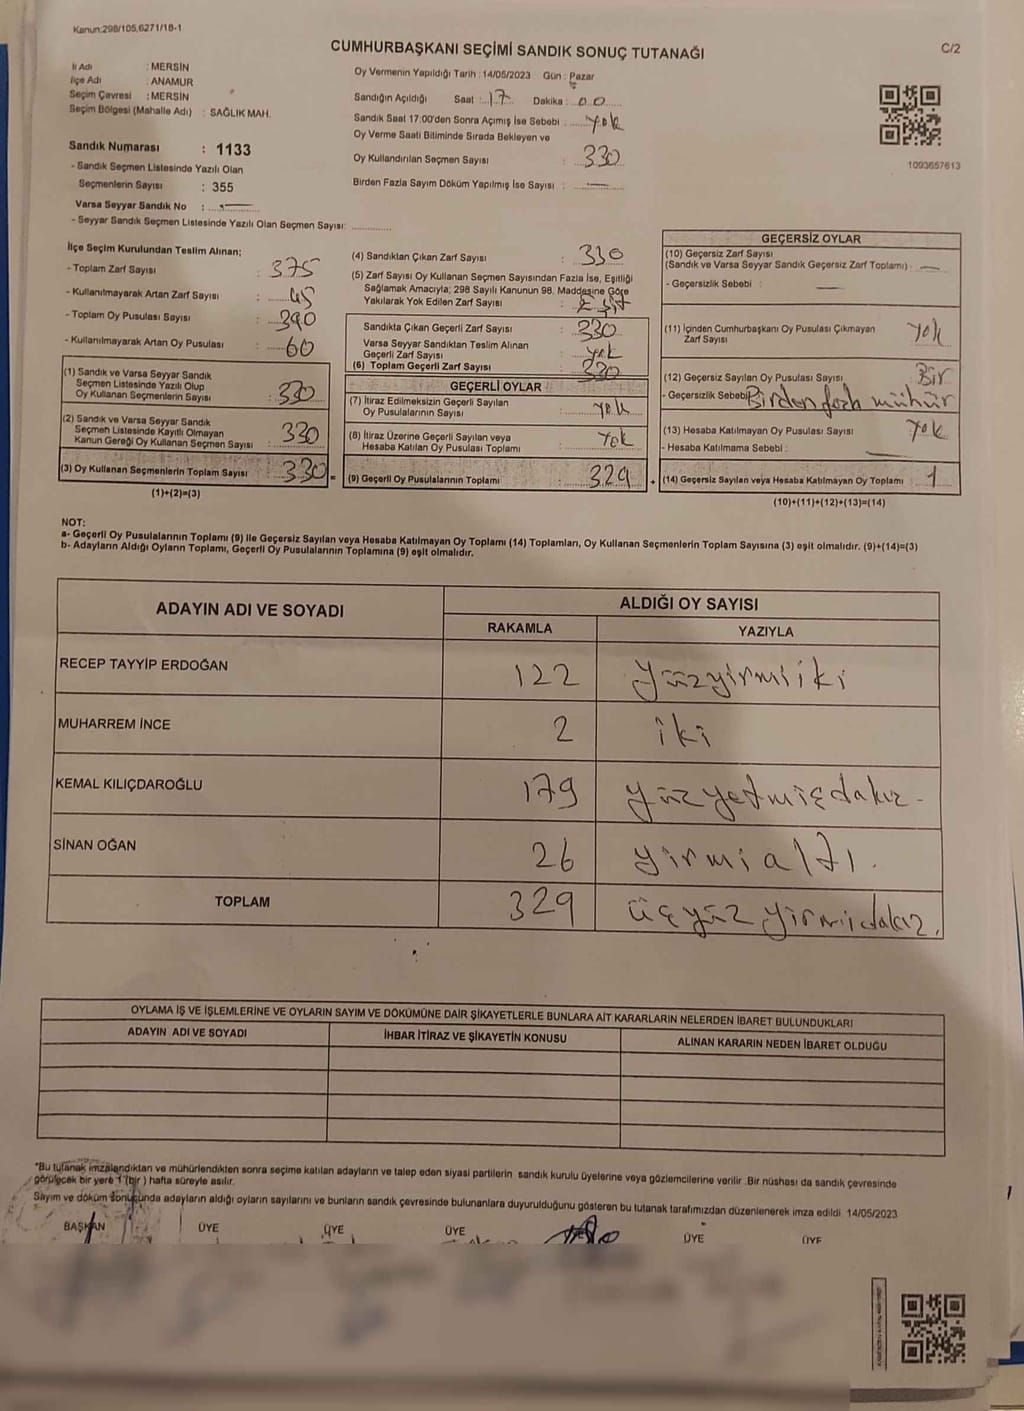 Kanun:298/105,6271/18-1
C/2
CUMHURBAŞKANI SEÇİMİ SANDIK SONUÇ TUTANAĞI
İl Adı : MERSİN
İlçe Adı : ANAMUR
Seçim Çevresi : MERSİN
Seçim Bölgesi (Mahalle Adı) : SAĞLIK MAH.
Sandık Numarası : 1133
- Sandık Seçmen Listesinde Yazılı Olan
Seçmenlerin Sayısı : 355
Varsa Seyyar Sandık No :
- Seyyar Sandık Seçmen Listesinde Yazılı Olan Seçmen Sayısı:
Oy Vermenin Yapıldığı Tarih : 14/05/2023 Gün : Pazar
Sandığın Açıldığı Saat : 17 Dakika : 00
Sandık Saat 17:00'den Sonra Açımış İse Sebebi : Yok
Oy Verme Saati Bitiminde Sırada Bekleyen ve
Oy Kullandırılan Seçmen Sayısı : 330
Birden Fazla Sayım Döküm Yapılmış İse Sayısı : —
1093657613
İlçe Seçim Kurulundan Teslim Alınan;
- Toplam Zarf Sayısı : 375
- Kullanılmayarak Artan Zarf Sayısı : 45
- Toplam Oy Pusulası Sayısı : 390
- Kullanılmayarak Artan Oy Pusulası : 60
(1) Sandık ve Varsa Seyyar Sandık
Seçmen Listesinde Yazılı Olup
Oy Kullanan Seçmenlerin Sayısı : 330
(2) Sandık ve Varsa Seyyar Sandık
Seçmen Listesinde Kayıtlı Olmayan
Kanun Gereği Oy Kullanan Seçmen Sayısı : 330
(3) Oy Kullanan Seçmenlerin Toplam Sayısı : 330
(1)+(2)=(3)
(4) Sandıktan Çıkan Zarf Sayısı : 330
(5) Zarf Sayısı Oy Kullanan Seçmen Sayısından Fazla İse, Eşitliği
Sağlamak Amacıyla; 298 Sayılı Kanunun 98. Maddesine Göre
Yakılarak Yok Edilen Zarf Sayısı : Eşit
Sandıkta Çıkan Geçerli Zarf Sayısı : 330
Varsa Seyyar Sandıktan Teslim Alınan
Geçerli Zarf Sayısı : Yok
(6) Toplam Geçerli Zarf Sayısı : 330
GEÇERLİ OYLAR
(7) İtiraz Edilmeksizin Geçerli Sayılan
Oy Pusulalarının Sayısı : Yok
(8) İtiraz Üzerine Geçerli Sayılan veya
Hesaba Katılan Oy Pusulası Toplamı : Yok
= (9) Geçerli Oy Pusulalarının Toplamı : 329
GEÇERSİZ OYLAR
(10) Geçersiz Zarf Sayısı
(Sandık ve Varsa Seyyar Sandık Geçersiz Zarf Toplamı) : —
- Geçersizlik Sebebi : —
(11) İçinden Cumhurbaşkanı Oy Pusulası Çıkmayan
Zarf Sayısı Yok
(12) Geçersiz Sayılan Oy Pusulası Sayısı : Bir
- Geçersizlik Sebebi : Birden fazla mühür
(13) Hesaba Katılmayan Oy Pusulası Sayısı : Yok
- Hesaba Katılmama Sebebi : —
+ (14) Geçersiz Sayılan veya Hesaba Katılmayan Oy Toplamı : 1
(10)+(11)+(12)+(13)=(14)
NOT:
a- Geçerli Oy Pusulalarının Toplamı (9) ile Geçersiz Sayılan veya Hesaba Katılmayan Oy Toplamı (14) Toplamları, Oy Kullanan Seçmenlerin Toplam Sayısına (3) eşit olmalıdır. (9)+(14)=(3)
b- Adayların Aldığı Oyların Toplamı, Geçerli Oy Pusulalarının Toplamına (9) eşit olmalıdır.
ADAYIN ADI VE SOYADI ALDIĞI OY SAYISI
RAKAMLA YAZIYLA
RECEP TAYYİP ERDOĞAN 122 yüzyirmiiki
MUHARREM İNCE 2 iki
KEMAL KILIÇDAROĞLU 179 yüzyetmişdokuz
SİNAN OĞAN 26 yirmialtı.
TOPLAM 329 üçyüz yirmidokuz.
OYLAMA İŞ VE İŞLEMLERİNE VE OYLARIN SAYIM VE DÖKÜMÜNE DAİR ŞİKAYETLERLE BUNLARA AİT KARARLARIN NELERDEN İBARET BULUNDUKLARI
ADAYIN ADI VE SOYADI İHBAR İTİRAZ VE ŞİKAYETİN KONUSU ALINAN KARARIN NEDEN İBARET OLDUĞU
*Bu tutanak imzalandıktan ve mühürlendikten sonra seçime katılan adayların ve talep eden siyasi partilerin sandık kurulu üyelerine veya gözlemcilerine verilir .Bir nüshası da sandık çevresinde
görülecek bir yere 1 (bir ) hafta süreyle asılır.
Sayım ve döküm sonucunda adayların aldığı oyların sayılarını ve bunların sandık çevresinde bulunanlara duyurulduğunu gösteren bu tutanak tarafımızdan düzenlenerek imza edildi. 14/05/2023
BAŞKAN ÜYE ÜYE ÜYE ÜYE ÜYE